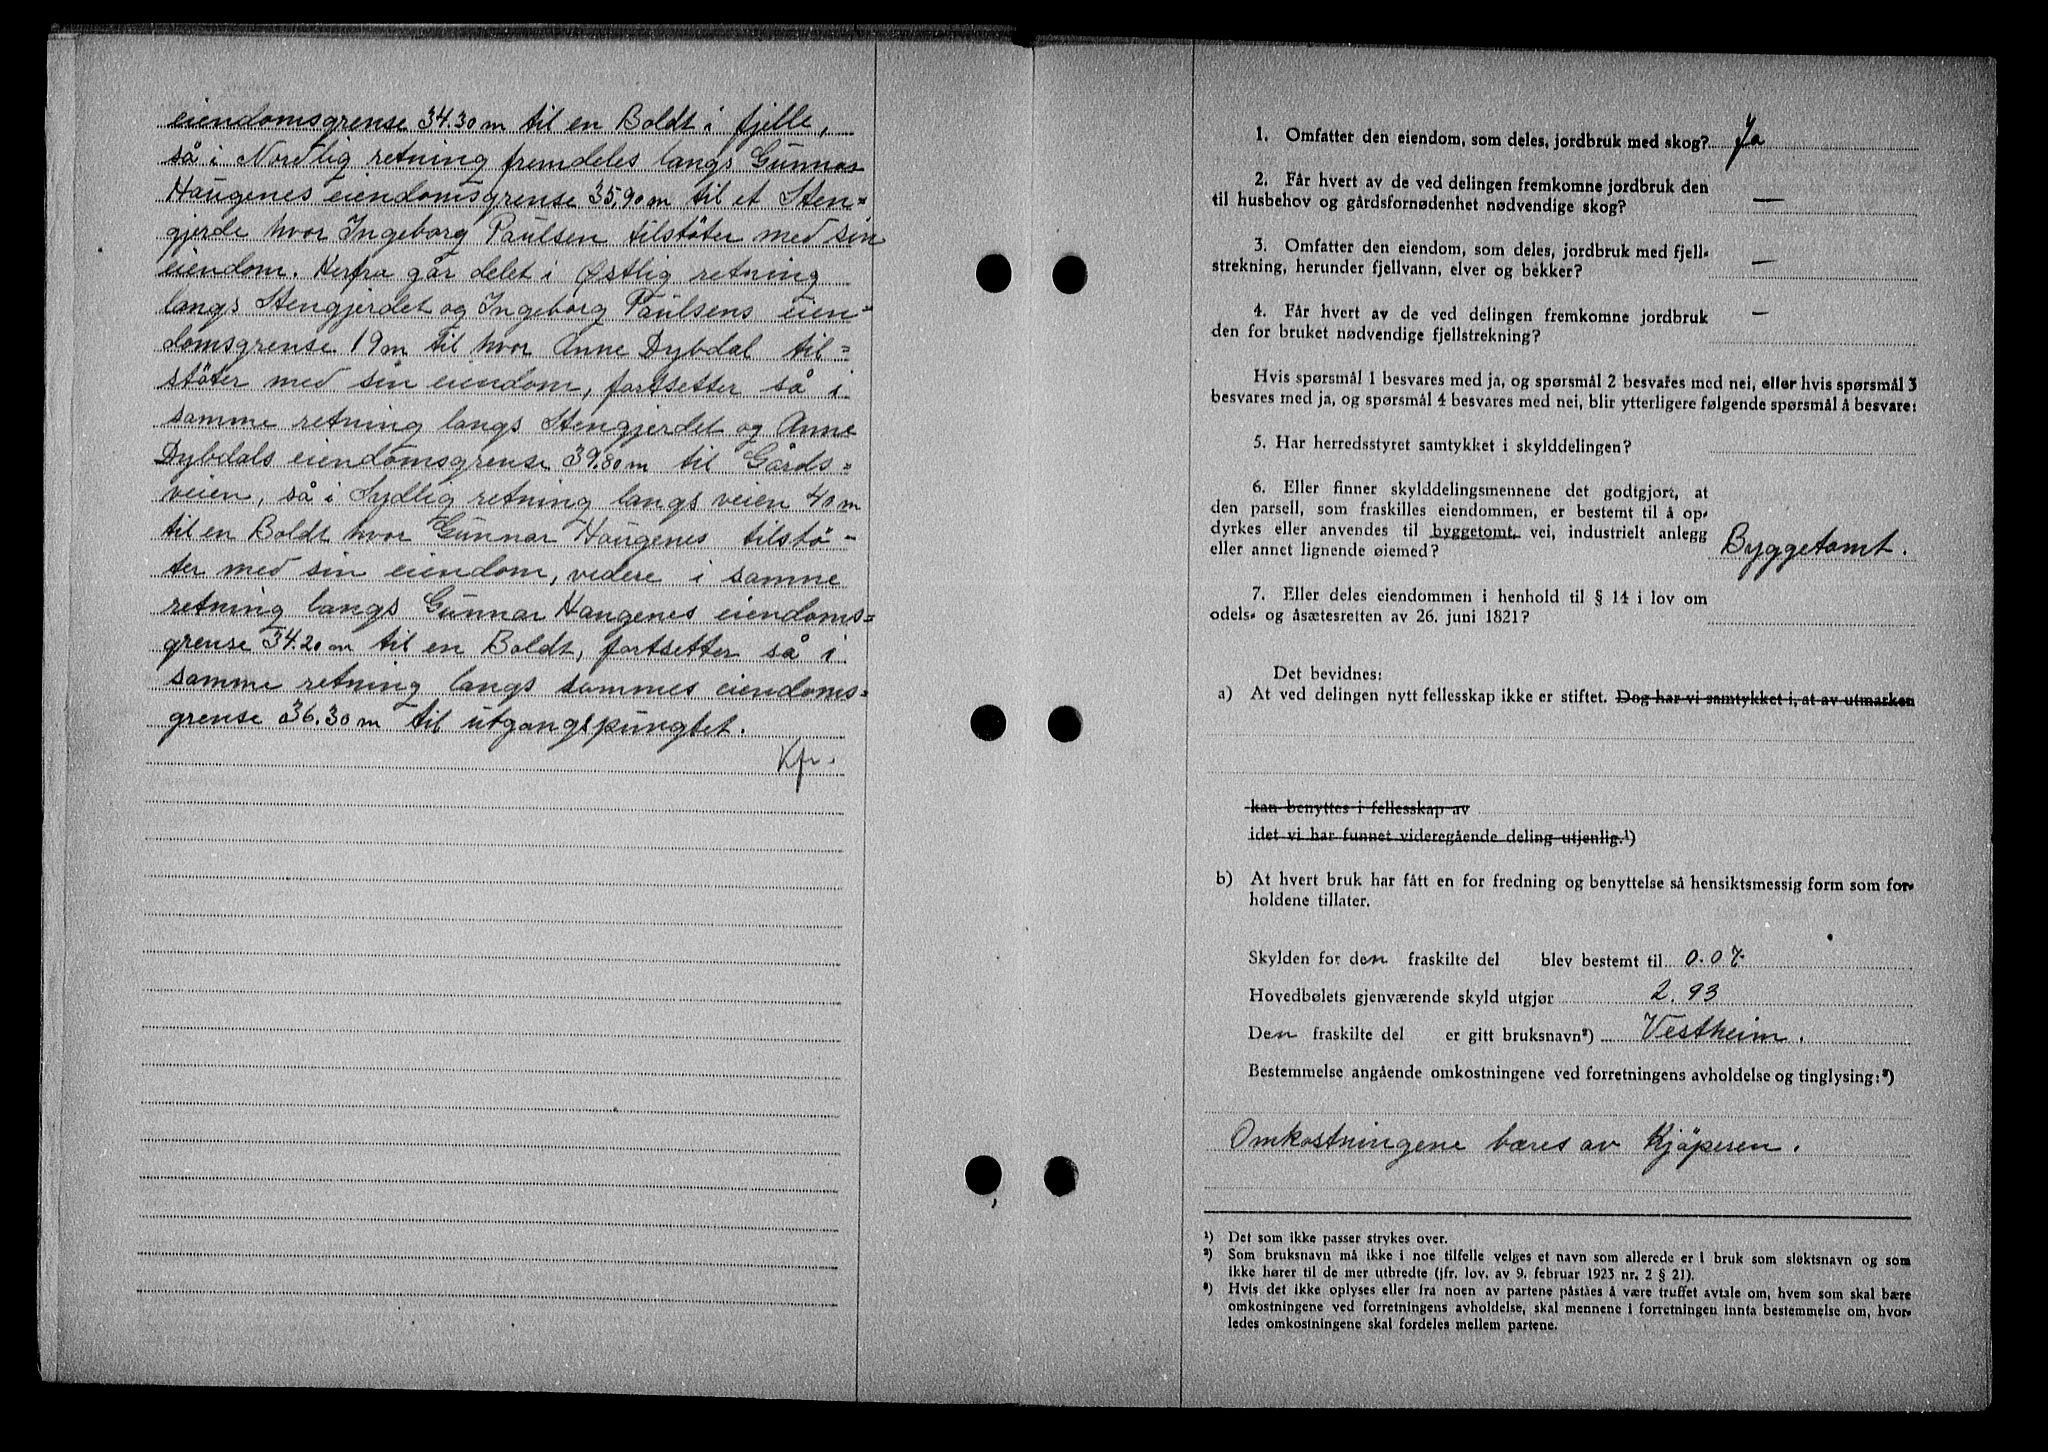 eiendomsgrense 34.30 m til en Boldt i fjelle,
så i Nordlig retning fremdeles langs Gunnar
Haugenes eiendomsgrense 35,90 m til et Sten=
gjerde hvor Ingeborg Paulsen tilstöter med sin
eiendom. Herfra går delet i Østlig retning
langs Stengjerdet og Ingeborg Paulsens eien=
domsgrense 19 m til hvor Anne Dybdal til=
stöter med sin eiendom, fortsetter så i
samme retning langs Stengjerdet og Anne
Dybdals eiendomsgrense 39.80 m til Gårds=
veien, så i Sydlig retning langs veien 40 m
til en Boldt hvor Gunnar Haugenes tilstö-
ter med sin eiendom, videre i samme
retning langs Gunnar Haugenes eiendoms=
grense 34.20 m til en Boldt, fortsetter så i
samme retning langs sammes eiendoms=
grense 36.30 m til utgangspungtet.
Kfr.
1. Omfatter den eiendom, som deles, jordbruk med skog? Ja
2. Får hvert av de ved delingen fremkomne jordbruk den
til husbehov og gårdsfornødenhet nødvendige skog? —
3. Omfatter den eiendom, som deles, jordbruk med fjell-
strekning, herunder fjellvann, elver og bekker? —
4. Får hvert av de ved delingen fremkomne jordbruk
den for bruket nødvendige fjellstrekning? —
Hvis spørsmål 1 besvares med ja, og spørsmål 2 besvares med nei, eller hvis spørsmål 3
besvares med ja, og spørsmål 4 besvares med nei, blir ytterligere følgende spørsmål å besvare:
5. Har herredsstyret samtykket i skylddelingen?
6. Eller finner skylddelingsmennene det godtgjort, at
den parsell, som fraskilles eiendommen, er bestemt til å op-
dyrkes eller anvendes til byggetomt, vei, industrielt anlegg
eller annet lignende øiemed? Byggetomt.
7. Eller deles eiendommen i henhold til § 14 i lov om
odels- og åsætesretten av 26. juni 1821?
Det bevidnes:
a) At ved delingen nytt fellesskap ikke er stiftet. Dog har vi samtykket i, at av utmarken
kan benyttes i fellesskap av
idet vi har funnet videregående deling utjenlig.¹)
b) At hvert bruk har fått en for fredning og benyttelse så hensiktsmessig form som for-
holdene tillater.
Skylden for den fraskilte del blev bestemt til 0.07.
Hovedbølets gjenværende skyld utgjør 2.93
Den fraskilte del er gitt bruksnavn²) Vestheim.
Bestemmelse angående omkostningene ved forretningens avholdelse og tinglysing:³)
Omkostningene bæres av Kjöperen.
¹) Det som ikke passer strykes over.
²) Som bruksnavn må ikke i noe tilfelle velges et navn som allerede er i bruk som slektsnavn og som
ikke hører til de mer utbredte (jfr. lov. av 9. februar 1923 nr. 2 § 21).
³) Hvis det ikke oplyses eller fra noen av partene påståes å være truffet avtale om, hvem som skal bære
omkostningene ved forretningens avholdelse, skal mennene i forretningen innta bestemmelse om, hvor-
ledes omkostningene skal fordeles mellem partene.